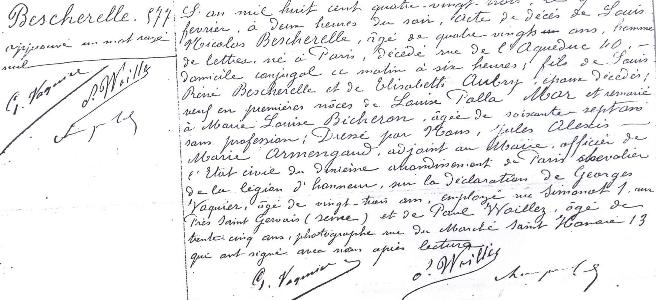 Bescherelle. 577
approuvé un mot rayé
nul
G. Vaquier P. Woillez
L'an mil huit cent quatre-vingt trois
février, à deux heures du soir, acte de décès de Louis
Nicolas Bescherelle, âgé de quatre vingt un ans, homme
de lettres, né à Paris, décédé rue de l'Aqueduc 40,
domicile conjugal ce matin à six heures; fils de Louis
René Bescherelle et de Elisabeth Aubry, époux décédés;
veuf en premières nôces de Louise Palla Mar et remarié
à Marie Louise Bicheron, âgée de soixante sept ans
sans profession; Dressé par Nous, Jules Alexis
Marie Armengaud, adjoint au Maire, officier de
l'Etat civil du dixième arrondissement de Paris chevalier
de la légion d'honneur, sur la déclaration de Georges
Vaquier, âgé de vingt-trois ans, employé rue Simonot 1, aux
Prés Saint Gervais (Seine) et de Paul Woillez, âgé de
trente cinq ans, photographe rue du Marché Saint Honoré 13
qui ont signé avec nous après lecture
G. Vaquier P. Woillez